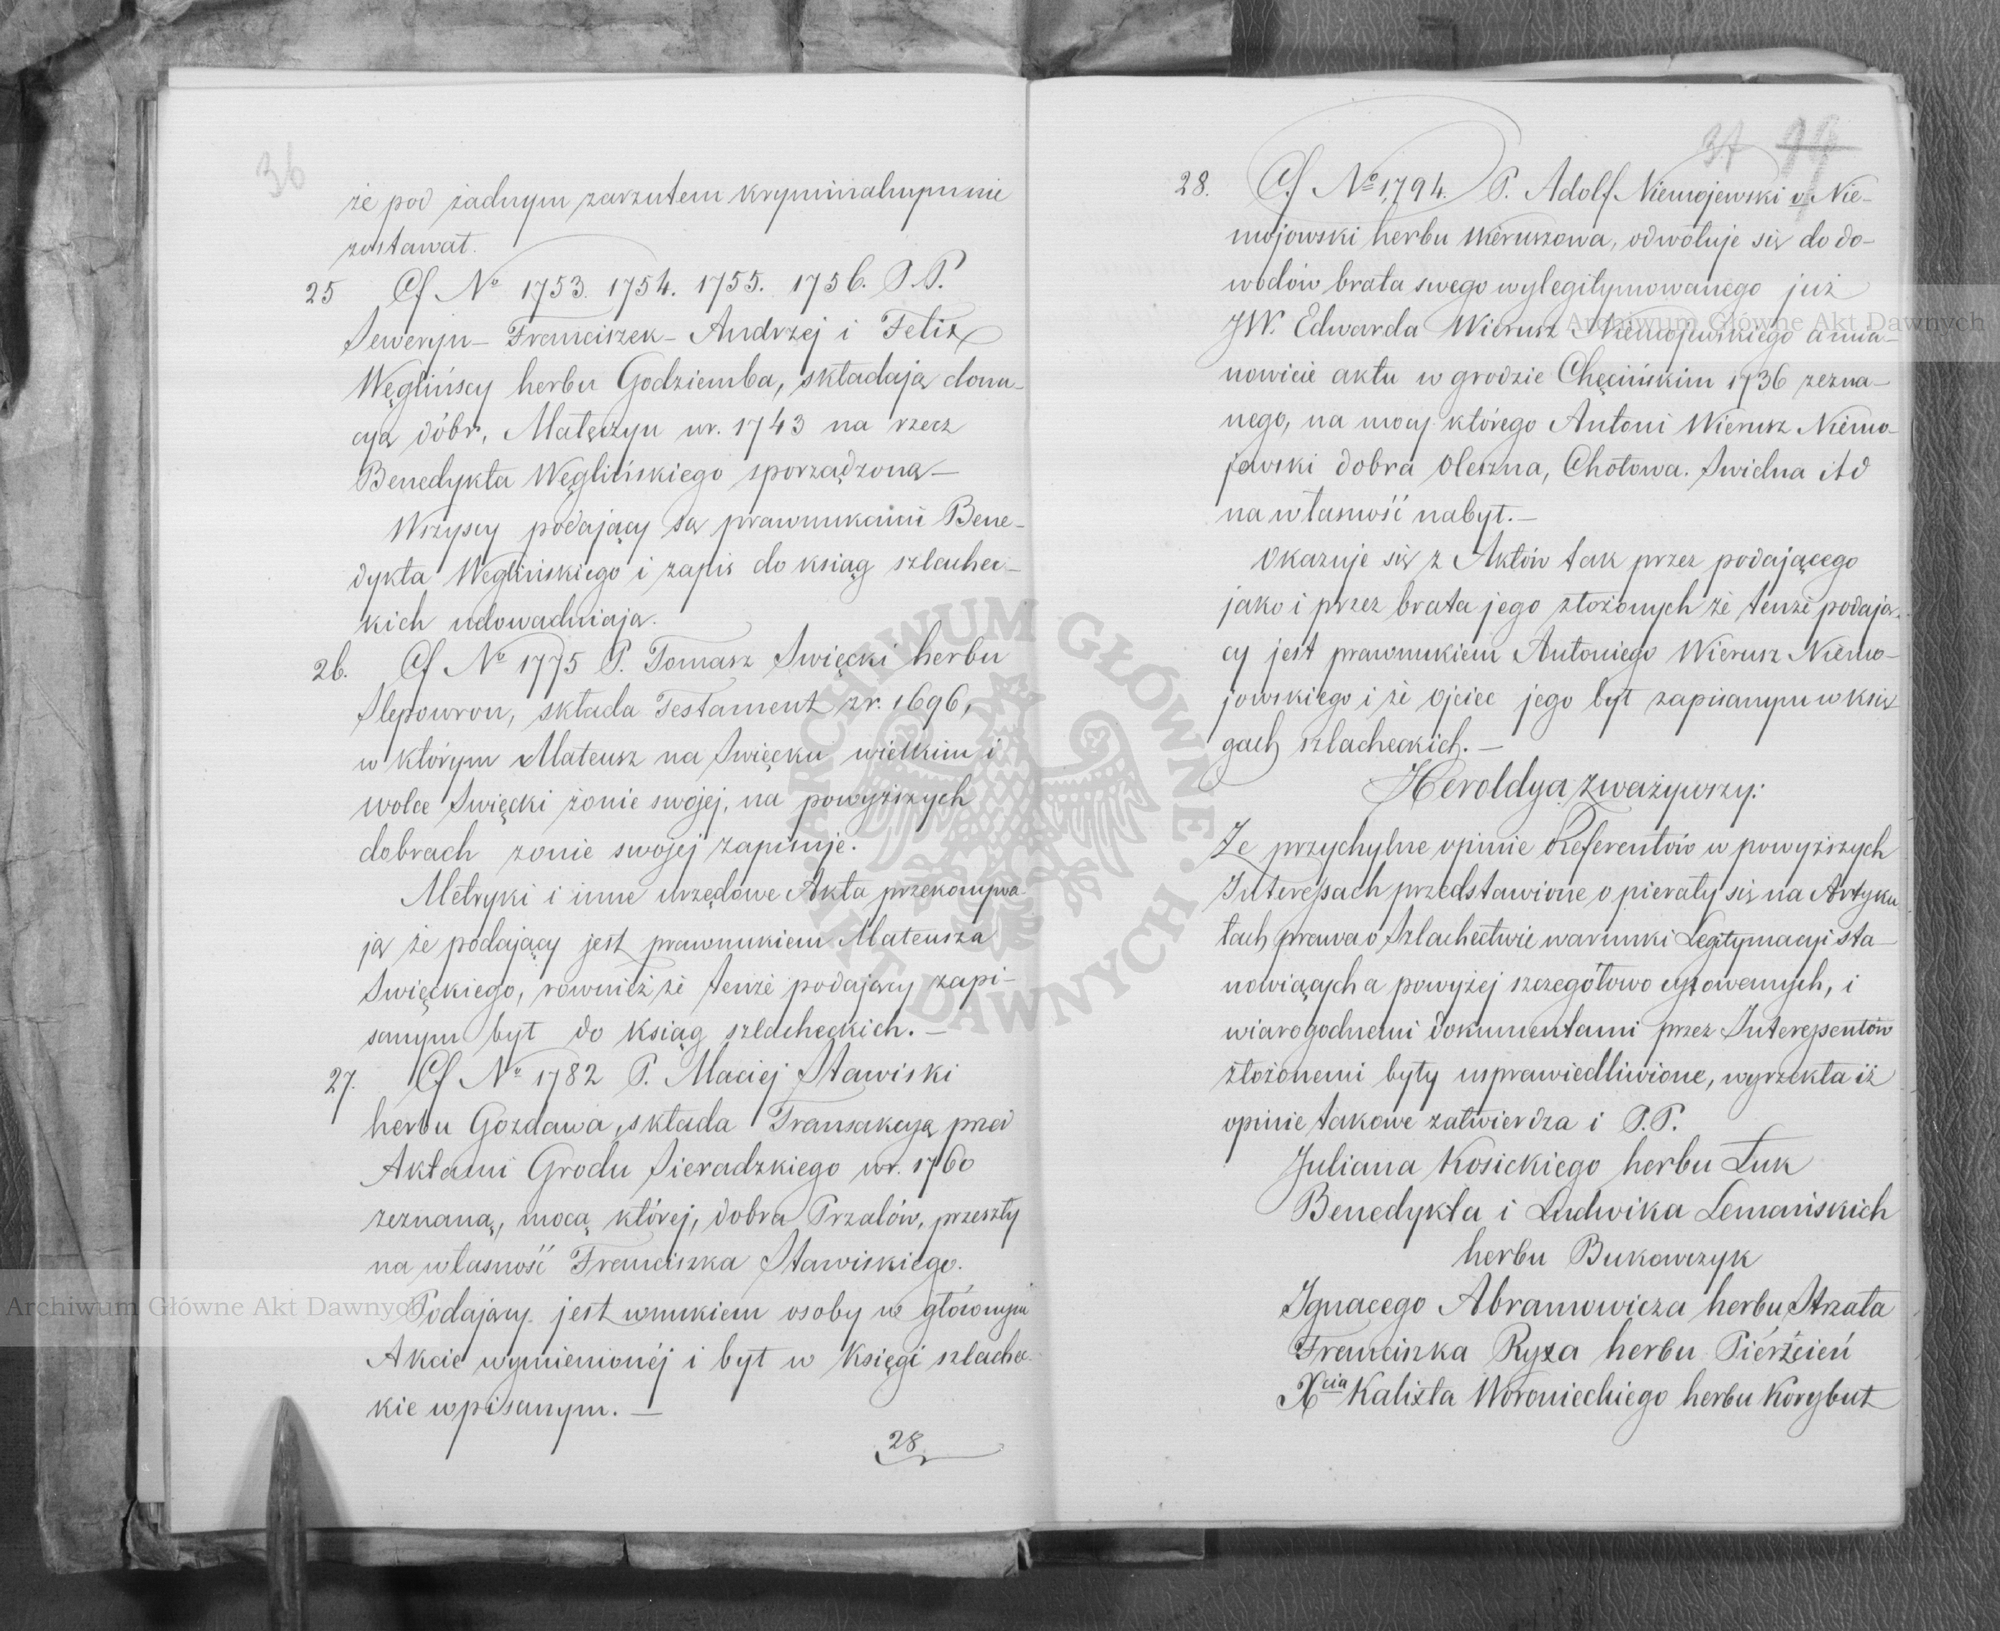 36
że pod żadnym zarzutem kryminalnym nie
zostawał.
25 Cf No 1753. 1754. 1755. 1756. P.P.
Seweryn – Franciszek – Andrzej i Felix
Węglińscy herbu Godziemba, składają dona-
cyą dóbr, Matczyn w r. 1743 na rzecz
Benedykta Węglińskiego sporządzoną –
Wszyscy podający są prawnukami Bene-
dykta Węglińskiego i zapis do ksiąg szlachec-
kich udowadniają.
26. Cf No 1775 P. Tomasz Swięcki herbu
Slepowron, składa Testament z r. 1696,
w którym Mateusz na Swięcku wielkim i
wolce Swięcki żonie swojej, na powyższych
dobrach zonie swojej zapisuje.
Metryki i inne urzędowe Akta przekonywa-
ją że podający jest prawnukiem Mateusza
Swięckiego, również że tenże podający zapi-
sanym był do ksiąg szlacheckich. –
27. Cf No 1782 P. Maciej Stawiski
herbu Gozdawa, składa Transakcyą przed
Aktami Grodu Sieradzkiego w r. 1760
zeznaną, mocą której, dobra Przatów, przeszły
na własność Franciszka Stawiskiego.
Podający jest wnukiem osoby w głównym
Akcie wymienionéj i był w Księgi szlachec-
kie wpisanym. –
28
37 19
28. Cf No 1,794. P. Adolf Niemojewski v. Nie-
mojowski herbu Wieruszowa, odwołuje się do do-
wodów brata swego wylegitymowanego już
JW. Edwarda Wierusz Niemojewskiego a mia-
nowicie aktu w grodzie Chęcińskim 1736 zezna-
nego, na mocy którego Antoni Wierusz Niemo-
jewski dobra Oleszna, Chotowa. Swidna itd
na własność nabył. –
Okazuje się z Aktów tak przez podającego
jako i przez brata jego złożonych że tenże podają-
cy jest prawnukiem Antoniego Wierusz Niemo-
jowskiego i że Ojciec jego był zapisanym w księ
gach szlacheckich. –
Heroldya zważywszy:
Ze przychylne opinie Referentów w powyższych
Interessach przedstawione opierały się na Artyku
łach prawa o Szlachectwie warunki Legitymacyi sta-
nowiących a powyżej szczegółowo cytowanych, i
wiarogodnemi dokumentami przez Interessentów
złożonemi były usprawiedliwione, wyrzekła iż
opinie takowe zatwierdza i P.P.
Juliana Kosickiego herbu Łuk
Benedykta i Ludwika Lemańskich
herbu Bukowczyk
Ignacego Abramowicza herbu Strzała
Franciszka Ryxa herbu Piérścień
Xcia Kalixta Woronieckiego herbu Korybut
Archiwum Główne Akt Dawnych
Archiwum Główne Akt Dawnych
ARCHIWUM GŁÓWNE · AKT DAWNYCH ·